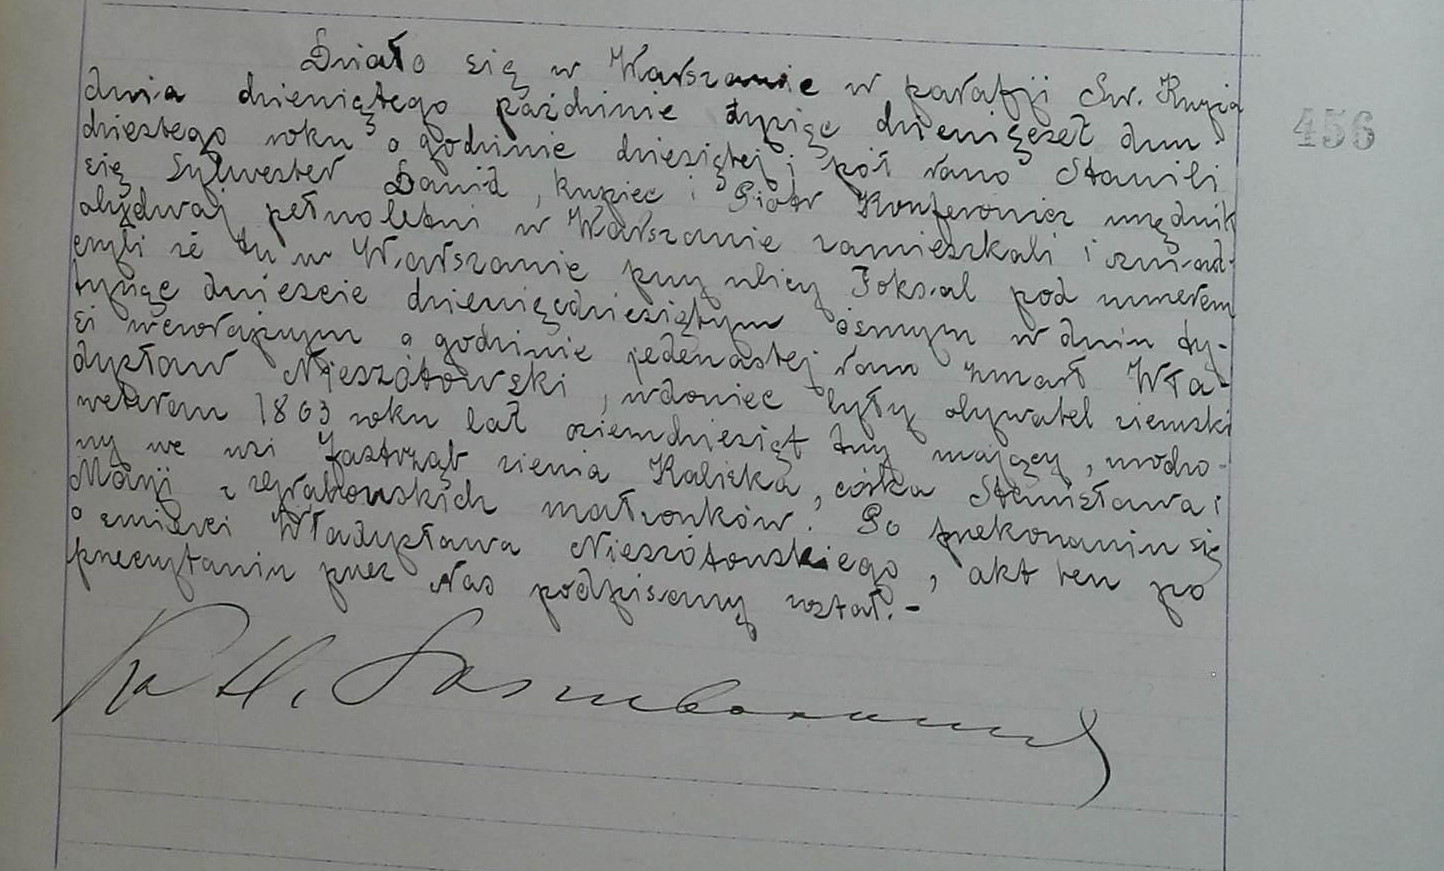 Działo się w Warszawie w parafji Św. Krzyża
dnia dziewiątego paździnie tysiąc dziewięćset dwu-
dziestego roku o godzinie dziesiątej i pół rano Stawili
się Sylwester Dawid, kupiec i Piotr Konferowicz urzędnik
obydwaj pełnoletni w Warszawie zamieszkali i oświad-
czyli że tu w Warszawie przy ulicy Foksal pod numerem
tysiąc dwieście dziewięćdziesiątym ósmym w dniu dy-
si wczorajszym o godzinie jedenastej rano zmarł Wła-
dysław Nieszótowski, wdowiec były obywatel ziemski
weteran 1863 roku lat osiemdziesiąt trzy mający, urodzo-
ny we wsi Jastrząb ziemia Kaliska,              Stanisława i
Marji z Grabowskich małżonków. Po przekonaniu się
o śmierci Władysława Nieszótowskiego, akt ten po
przeczytaniu przez Nas podpisany został.-
456